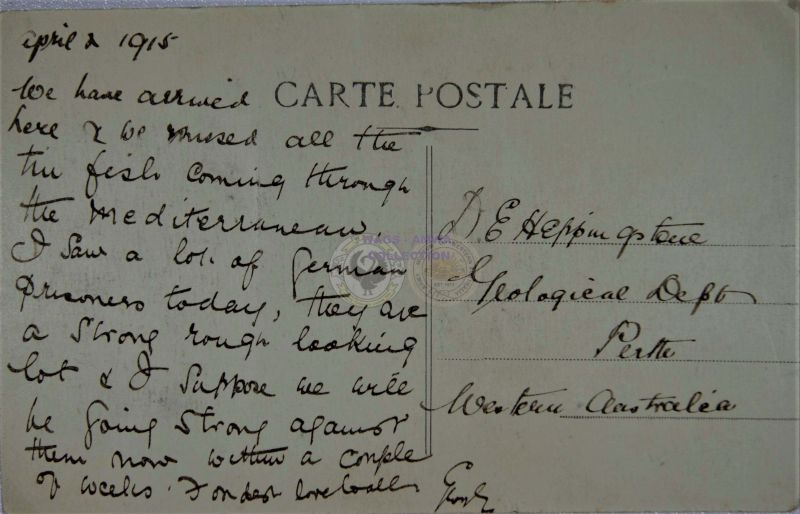 april 2 1915
We have arrived
here & we missed all the
tin fish coming through
the Mediterranean,
I saw a lot of German
prisoners today, they are
a strong rough looking
lot & I suppose we will
be going strong against
them now within a couple
of weeks. Fondest love to all
CARTE POSTALE
D. E Heppingstone
Geological Dept
Perth
Western Australia
WAGS - ANNAL
COLLECTION